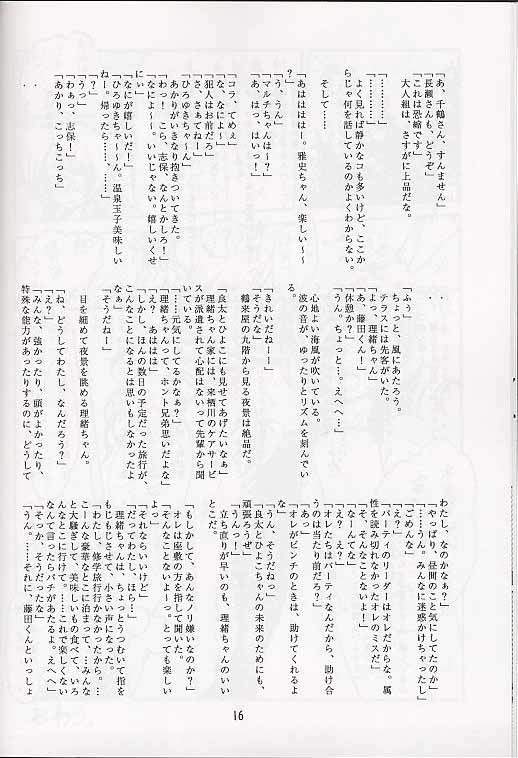 「あ、千鶴さん、すんません」
「長瀬さんも、どうぞ」
「これは恐縮です」
大人組は、さすがに上品だな。
「…………」
「…………」
よく見れば静かなコも多いけど、ここか
らじゃ何を話しているのかよくわからない。
そして……
「あははははー。雅史ちゃん、楽しい～～
？」
「う、うん」
「マルチちゃんは～？」
「あ、はっ、はいっ！」
「コラ、てめぇ」
「な、なによ～」
「犯人はお前だろ」
「さ、さぁてねー」
「ひろゆきちゃ～ん」
あかりがいきなり抱きついてきた。
「わっ！ こら、志保、なんとかしろ！」
「なによ～～、いいじゃない。嬉しいくせ
にぃ」
「なにが嬉しいだ！」
「ひろゆきちゃ～～ん。温泉玉子美味しい
ねー。帰ったら……、……」
「？」
「うっ」
「わぁっ、志保！」
「あかり、こっちこっち」
・
・
・
・
「ふぅ」
ちょっと、風にあたろう。
テラスには先客がいた。
「よっ、理緒ちゃん」
「あ、藤田くん！」
「休憩か？」
「うん。ちょっと…。えへへ…」
心地よい海風が吹いている。
波の音が、ゆったりとリズムを刻んでい
る。
「きれいだねー」
「そうだな」
鶴来屋の九階から見る夜景は絶品だ。
「良太とひよこにも見せてあげたいなぁ」
理緒ちゃん家には、来栖川のケアサービ
スが派遣されて心配はないって先輩から聞
いている。
「……元気にしてるかなぁ？」
「理緒ちゃんって、ホント兄弟思いだよな」
「え？ あははは」
「しかし、ほんの数日の予定だった旅行が、
こんなことになるとは思いもしなかったよ
なぁ」
「そうだねー」
目を細めて夜景を眺める理緒ちゃん。
「ね、どうしてわたし、なんだろう？」
「え？」
「みんな、強かったり、頭がよかったり、
特殊な能力があったりするのに、どうして
わたし、なのかなぁ？」
「やっぱり、昼間のこと気にしてたのか」
「……うん。みんなに迷惑かけちゃったし」
「ごめんな」
「えっ？」
「パーティのリーダーはオレだからな。属
性を読み切れなかったオレのミスだ」
「そ、そんなことないよ！」
「なーんてな」
「え？ え？」
「オレたちはパーティなんだから、助け合
うのは当たり前だろ？」
「あっ」
「オレがピンチのときは、助けてくれるよ
な」
「うん、そうだねっ」
「良太とひよこちゃんの未来のためにも、
頑張ろうぜ」
「うんっ！」
立ち直りが早いのも、理緒ちゃんのいい
とこだ。
「もしかして、あんなノリ嫌いなのか？」
オレは座敷の方を指して聞いた。
「そんなことないよーっ。とっても楽しい
よ」
「それならいいけど」
「だってわたし、ほら…」
理緒ちゃんは、ちょっとうつむいて指を
もじもじさせて、小さい声になった。
「わたし、修学旅行行かなかったから。…
こーんな豪華なとこに泊まって、…みんな
と大騒ぎして、美味しいもの食べて、いろ
んなとこに行けて。……これで楽しくない
なんて言ったらバチがあたるよ。えへへ」
「そっか、そうだったな」
「うん。……それに、藤田くんといっしょ
16